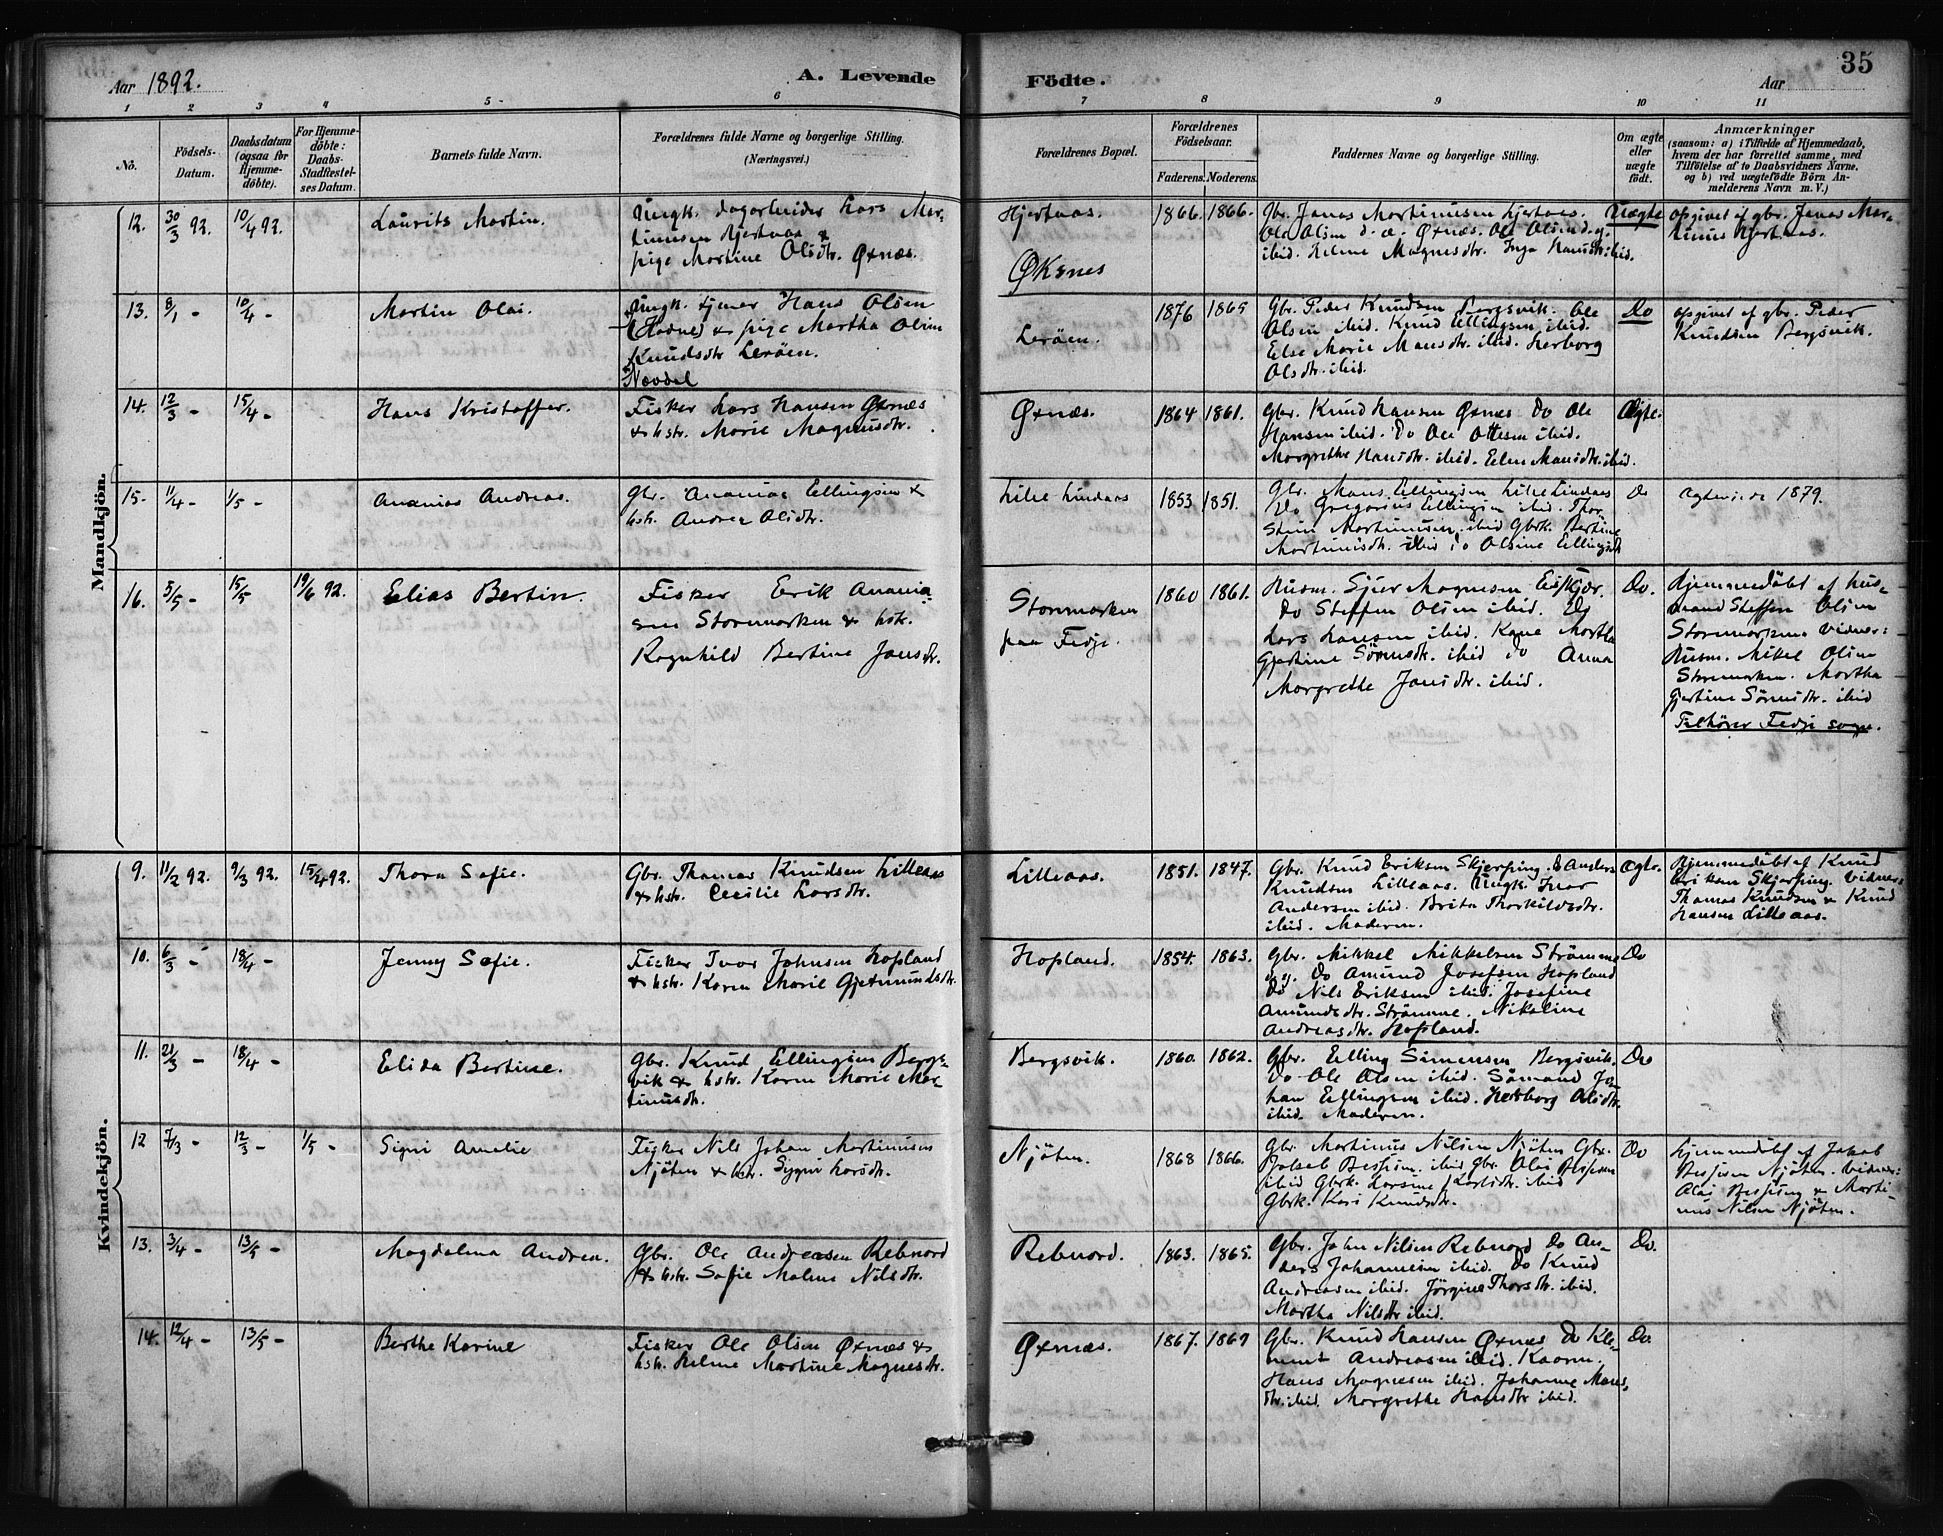 Aar 1892.
A. Levende
Födte.
Aar
35
1 2 3 4 5 6 7 8 9 10 11
No.
Födsels-
Datum.
Daabsdatum
(ogsaa for
Hjemme-
döbte).
For Hjemme-
döbte:
Daabs-
Stadfæstel-
ses Datum.
Barnets fulde Navn.
Forældrenes fulde Navne og borgerlige Stilling.
(Næringsvei.)
Forældrenes Bopæl.
Forældrenes
Födselsaar.
Faderens. Moderens.
Faddernes Navne og borgerlige Stilling.
Om ægte
eller
uægte
födt.
Anmærkninger
(saasom: a) i Tilfælde af Hjemmedaab,
hvem der har forrettet samme, med
Tilföielse af to Daabsvidners Navne,
og b) ved uægtefödte Börn An-
melderens Navn m. V.)
Mandkjön.
12. 30/3 92. 10/4 92.
Laurits Martin.
Ungk. dagarbeider Lars Mar-
tinusen Hjertaas &
pige Martine Olsdtr. Øxnæs.
Hjertaas.
ØKsnes
1866. 1866.
Gbr. Jonas Martinusen Hjertaas.
Ole Olsen d. æ. Øxnæs. Ole Olsen d. y.
ibid. Helene Magnesdtr. Inga Hansdtr. ibid.
Uægte
opgivet af gbr. Jonas Mar-
tinus Hjertaas.
13. 8/1 - 10/4 -
Martin Olai.
Ungk. tjener Hans Olsen
(Hodne) & pige Martha Oline
Knudsdtr Leröen.
Nævdal
Leröen.
1876 1865
Gbr. Peder Knudsen Bergsvik. Ole
Olsen ibid. Knud Ellingsen ibid.
Else Marie Mansdtr. ibid. Herborg
Olsdtr. ibid.
Do
opgivet af gbr. Peder
Knudsen Bergsvik.
14. 12/3 - 15/4 -
Hans Kristoffer.
Fisker Lars Hansen Øxnæs
& hstr. Marie Magnusdtr.
Øxnæs.
1864 1861.
Gbr. Knud Hansen Øxnæs Do Ole
Hansen ibid. Do Ole Ottesen ibid.
Margrethe Hansdtr. ibid. Elen Mansdtr. ibid.
Ægte.
15. 11/4 - 1/5 -
Ananias Andreas.
Gbr. Ananias Ellingsen &
hstr. Andrea Olsdtr.
Lille Lindaas
1853 1851.
Gbr. Mons Ellingsen Lille Lindaas
Do Gregorius Ellingsen ibid. Thor
Stein Martinusen ibid Gbrk. Bertine
Martinusdtr. ibid Do Olsine Ellingsdtr
Do
1879.
16. 5/5 - 15/5 19/6 92.
Elias Bertin.
Fisker Erik Anania-
sen Stormarken & hstr.
Ragnhild Bertine Jansdtr.
Stormarken
paa Fedje.
1860 1861.
Husm. Sjur Magnesen Eiskjær.
Do Steffen Olsen ibid. Do
Lars Hansen ibid. Kone Martha
Gjertine Sörensdtr. ibid Do Anna
Margrethe Jansdtr. ibid.
Do.
Hjemmedöbt af hus-
mand Steffen Olsen
Stormarken. Vidner:
Husm. Mikel Olsen
Stormarken. Martha
Gjertine Sörensdtr. ibid
Tilhører Fedje sogn.
Kvindekjön.
9. 11/2 92. 9/3 92. 15/4 92.
Thora Sofie.
Gbr. Thomas Knudsen Lilleaas
& hstr. Cecilie Larsdtr.
Lilleaas.
1851. 1847.
Gbr. Knud Eriksen Skjerping. Do Anders
Knudsen Lilleaas. Ungk. Ivar
Andersen ibid. Brita Thorkildsdtr.
ibid. Moderen.
Ægte.
Hjemmedöbt af Knud
Eriksen Skjerping. Vidner:
Thomas Knudsen & Knud
Hansen Lilleaas.
10. 6/3 - 18/4 -
Jenny Sofie.
Fisker Ivar Johnsen Hopland
& hstr. Karen Marie Gjetmundsdtr.
Hopland.
1854. 1863.
Gbr. Mikkel Mikkelsen Strömme
y. y. Do Amund Josefsen Hopland
Do Nils Eriksen ibid. Josefine
Amundsdtr. Strömme. Nikoline
Andreasdtr. Hopland.
Do
11. 21/3 - 18/4 -
Elida Bertine.
Gbr. Knud Ellingsen Bergs-
vik & hstr. Karen Marie Mar-
tinusdtr.
Bergsvik.
1860. 1862.
Gbr. Elling Simensen Bergsvik.
Do Ole Olsen ibid. Sömand Jo-
han Ellingsen ibid. Herborg Olsdtr.
ibid. Moderen.
Do
12 7/3 - 12/3 - 1/5 -
Signi Amelie
Fisker Nils Johan Martinusen
Njöten & hstr. Sygni Larsdtr.
Njöten.
1868 1866.
Gbr. Martinus Nilsen Njöten Gbr.
Jakob Bessesen ibid Gbr. Olai Bessesen
ibid Gbrk. Larsine Karlsdtr. ibid
Gbrk. Kari Knudsdtr.
Do
Hjemmedöbt af Jakob
Bessesen Njöten. Vidner:
Olai & Marti-
nus Nilsen Njöten.
13. 3/4 - 13/5 -
Magdalena Andrea.
Gbr. Ole Andreasen Rebnord
& hstr. Sofie Malene Nilsdtr.
Rebnord.
1863. 1865.
Gbr. John Nilsen Rebnord Do An-
ders Johannesen ibid. Do Knud
Andreasen ibid. Jörgine Thorsdtr. ibid.
Martha Nilsdtr ibid.
Do.
14. 12/4 - 13/5 -
Berthe Karine
Fisker Ole Olsen Øxnæs &
hstr. Helene Martine Magnesdtr.
Øxnæs.
1867. 1869
Gbr. Knud Hansen Øxnæs Do Kle-
ment Andreasen ibid. Kaarm.
Hans Magnesen ibid. Johanne Mons-
dtr. ibid. Margrethe Hansdtr ibid.
Do